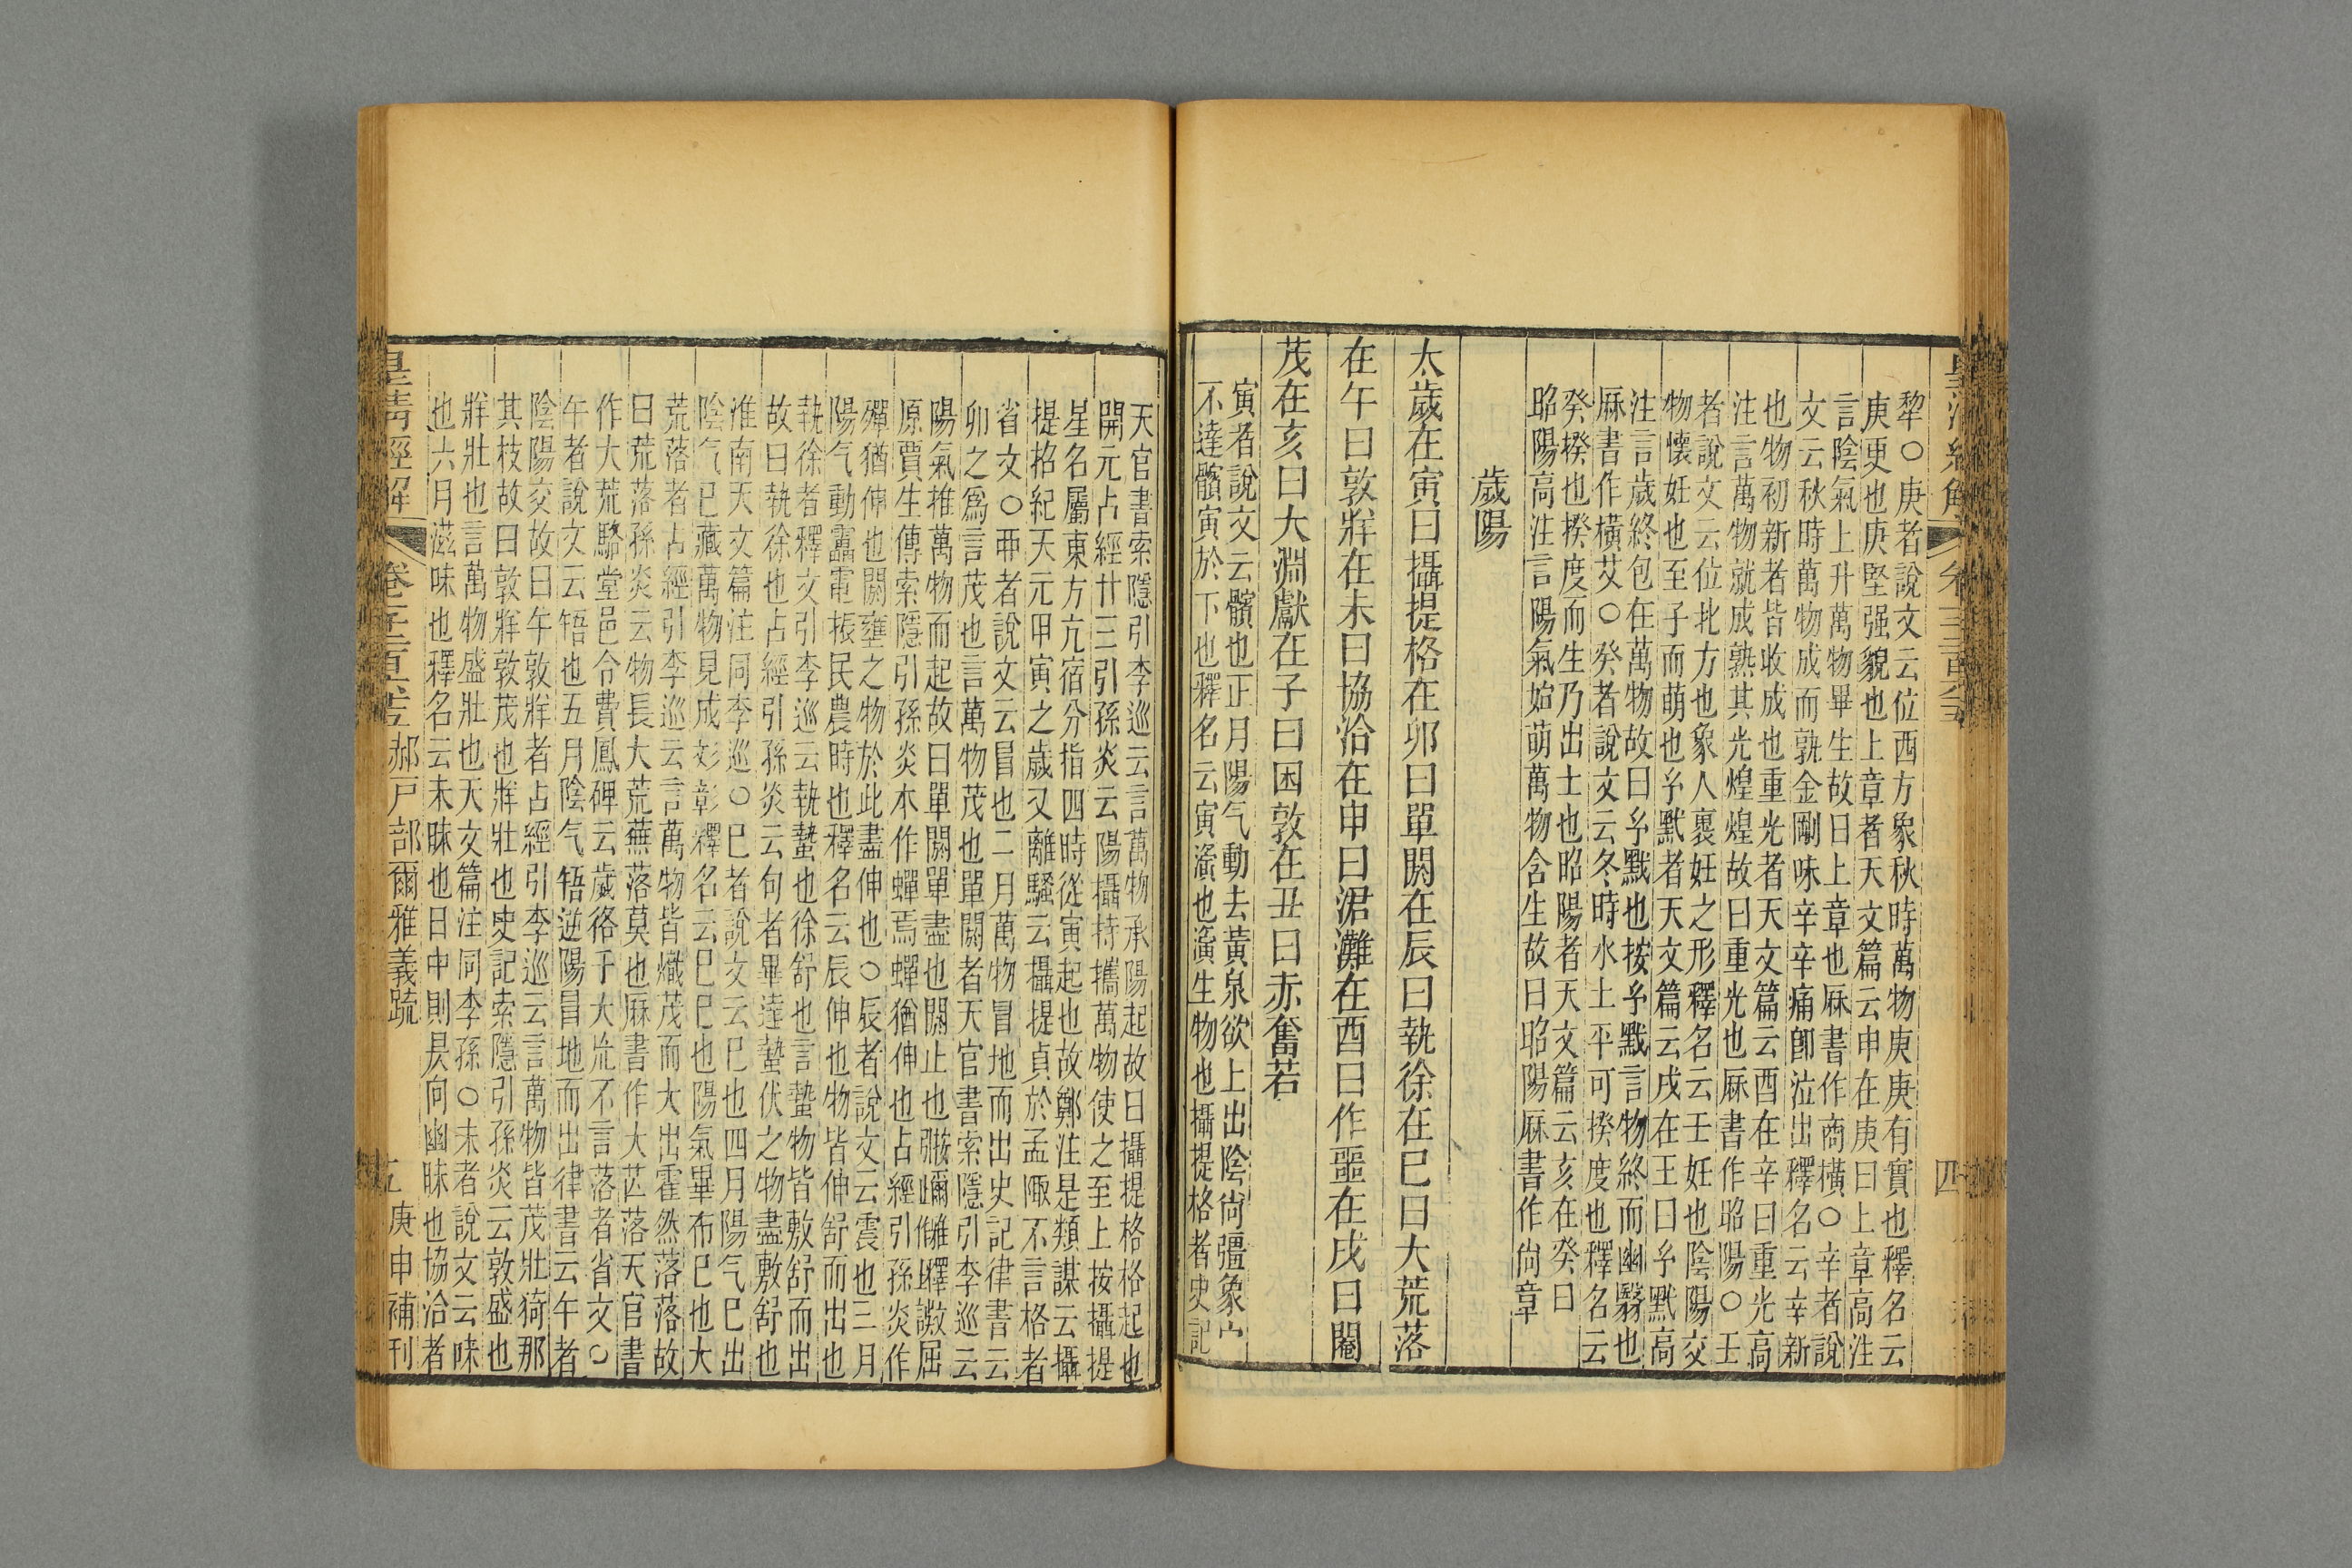 犂○庚者說文云位西方象秋時萬物庚庚有實也釋名云
庚更也庚堅强貌也上章者天文篇云申在庚曰上章高注
言陰氣上升萬物畢生故曰上章也厤書作商橫○辛者說
文云秋時萬物成而孰金剛味辛辛痛卽泣出釋名云辛新
也物初新者皆收成也重光者天文篇云酉在辛曰重光高
注言萬物就成熟其光煌煌故曰重光也厤書作昭陽○壬
者說文云位北方也象人裹妊之形釋名云壬妊也陰陽交
物懷妊也至子而萌也㐨默者天文篇云戌在壬曰㐨默高
注言歲終包在萬物故曰㐨默也按㐨默言物終而幽翳也
厤書作橫艾○癸者說文云冬時水土平可揆度也釋名云
癸揆也揆度而生乃出土也昭陽者天文篇云亥在癸曰
昭陽高注言陽氣始萌萬物含生故曰昭陽厤書作尙章
歲陽
太歲在寅曰攝提格在卯曰單閼在辰曰執徐在巳曰大荒落
在午曰敦牂在未曰協洽在申曰涒灘在酉曰作噩在戌曰閹
茂在亥曰大淵獻在子曰困敦在丑曰赤奮若
寅者說文云髕也正月陽气動去黃泉欲上出陰尙彊象宀
不達髕寅於下也釋名云寅演也演生物也攝提格者史記
天官書索隱引李巡云言萬物承陽起故曰攝提格格起也
開元占經廿三引孫炎云陽攝持攜萬物使之至上按攝提
星名屬東方亢宿分指四時從寅起也故鄭注是類謀云攝
提招紀天元甲寅之歲又離騷云攝提貞於孟陬不言格者
省文○丣者說文云冒也二月萬物冒地而出史記律書云
卯之爲言茂也言萬物茂也單閼者天官書索隱引李巡云
陽氣推萬物而起故曰單閼單盡也閼止也
原賈生傳索隱引孫炎本作蟬焉蟬猶伸也占經引孫炎作
殫猶伸也閼壅之物於此盡伸也○辰者說文云震也三月
陽气動靁電振民農時也釋名云辰伸也物皆伸舒而出也
執徐者釋文引李巡云執蟄也徐舒也言蟄物皆敷舒而出
故曰執徐也占經引孫炎云句者畢達蟄伏之物盡敷舒也
淮南天文篇注同李巡○巳者說文云巳也四月陽气巳出
陰气巳藏萬物見成彣彰釋名云巳巳也陽氣畢布巳也大
荒落者占經引李巡云言萬物皆熾茂而大出霍然落落故
曰荒落孫炎云物長大荒蕪落莫也厤書作大芒落天官書
作大荒駱堂邑令費鳳碑云歲袼于大㡆不言落者省文○
午者說文云啎也五月陰气啎逆陽冒地而出律書云午者
陰陽交故曰午敦牂者占經引李巡云言萬物皆茂壯猗那
其枝故曰敦牂敦茂也牂壯也史記索隱引孫炎云敦盛也
牂壯也言萬物盛壯也天文篇注同李孫○未者說文云味
也六月滋味也釋名云未昧也日中則昃向幽昧也協洽者
皇淸經解
郝戶部爾雅義疏
庚申補刊